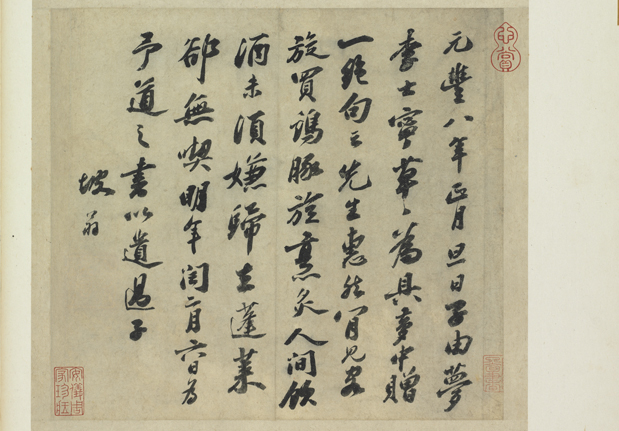 元豐八年正月旦日子由夢
李士寧草〻為具夢中贈
一絕句云先生惠然肯見客
旋買鷄豚旋烹炙人間飲
酒未須嫌歸去蓬萊
卻無喫明年閏二月六日為
予道之書以遺過子
坡翁
心賞
安儀周家珍藏